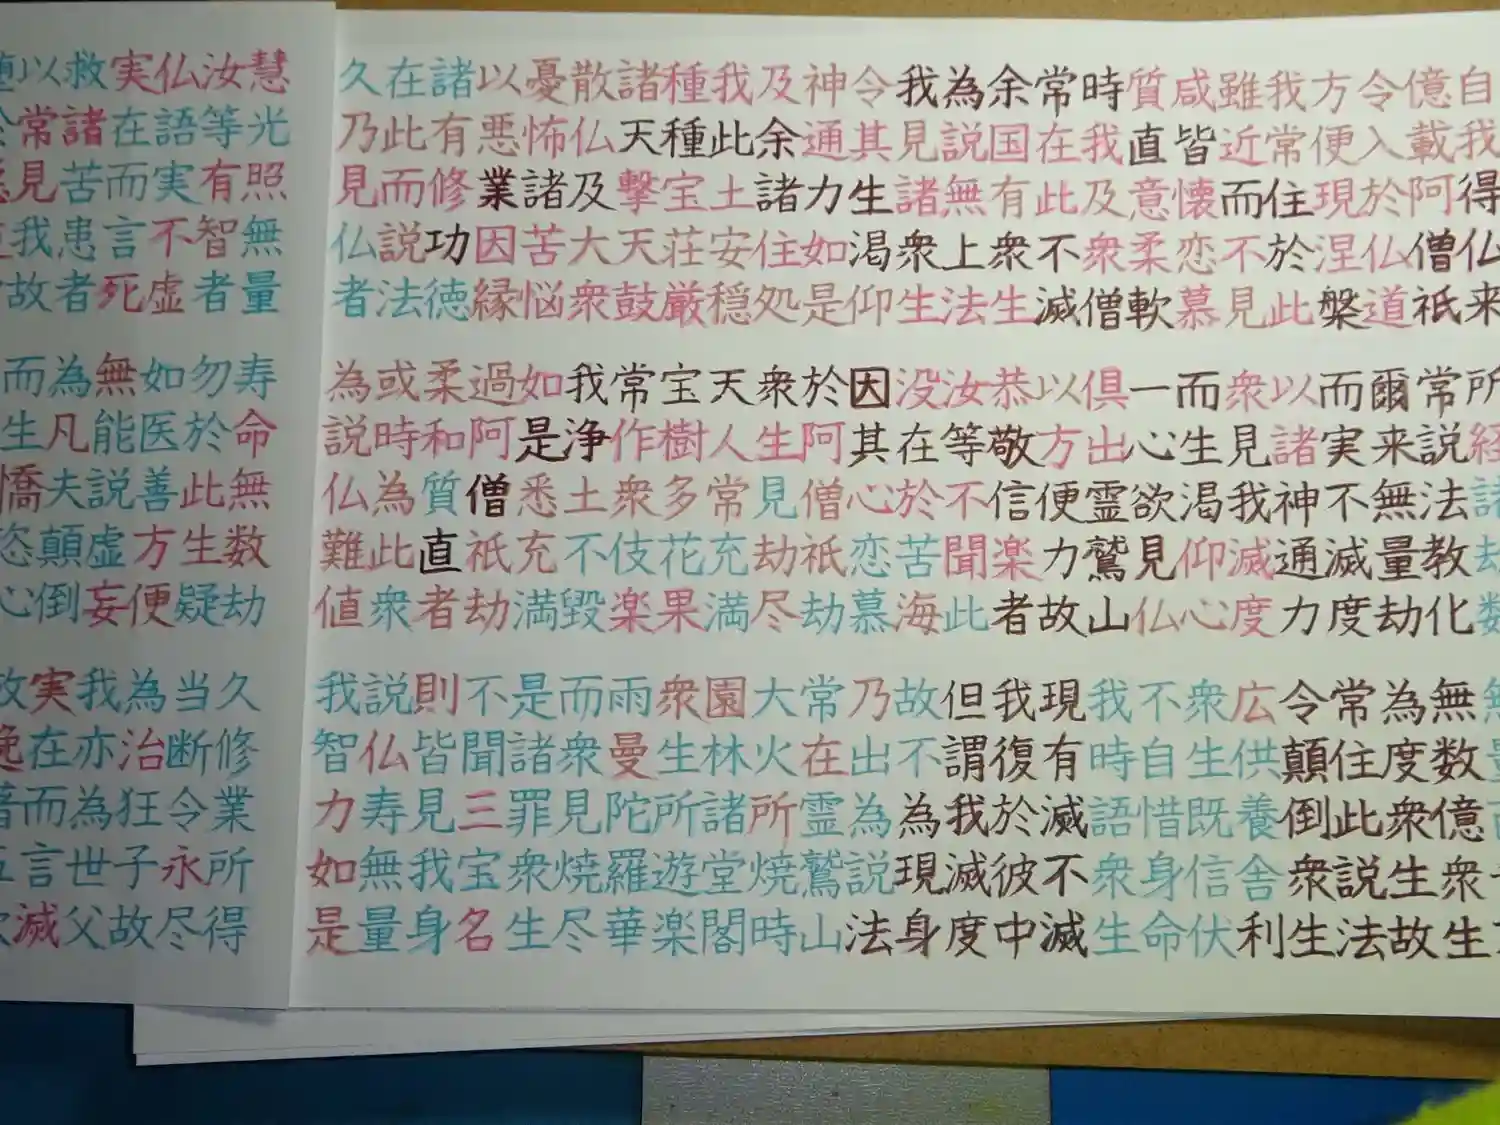 自我得仏来 所経諸劫数 無量百千
億載阿僧祇 常説法教化 無数億衆生
令入於仏道 爾来無量劫 為度衆生故
方便現涅槃 而実不滅度 常住此説法
我常住於此 以諸神通力 令顛倒衆生
雖近而不見 衆見我滅度 広供養舎利
咸皆懐恋慕 而生渇仰心 衆生既信伏
質直意柔軟 一心欲見仏 不自惜身命
時我及衆僧 倶出霊鷲山 我時語衆生
常在此不滅 以方便力故 現有滅不滅
余国有衆生 恭敬信楽者 我復於彼中
為説無上法 汝等不聞此 但謂我滅度
我見諸衆生 没在於苦海 故不為現身
令其生渇仰 因其心恋慕 乃出為説法
神通力如是 於阿僧祇劫 常在霊鷲山
及余諸住処 衆生見劫尽 大火所焼時
我此土安穏 天人常充満 園林諸堂閣
種種宝荘厳 宝樹多花果 衆生所遊楽
諸天撃天鼓 常作衆伎楽 雨曼陀羅華
散仏及大衆 我浄土不毀 而衆見焼尽
憂怖諸苦悩 如是悉充満 是諸罪衆生
以悪業因縁 過阿僧祇劫 不聞三宝名
諸有修功徳 柔和質直者 則皆見我身
在此而説法 或時為此衆 説仏寿無量
久乃見仏者 為説仏難値 我智力如是
慧光照無量 寿命無数劫 久修業所得
汝等有智者 勿於此生疑 当断令永尽
仏語実不虚 如医善方便 為治狂子故
実在而言死 無能説虚妄 我亦為世父
救諸苦患者 為凡夫顛倒 実在而言滅
以常見我故 而生憍恣心